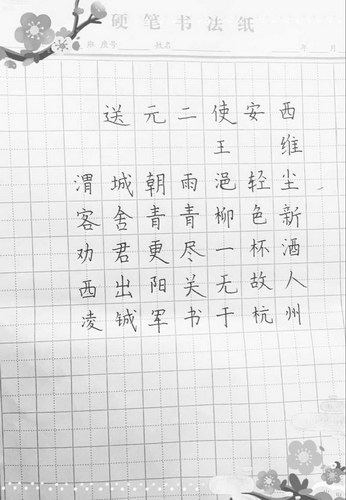 硬笔书法纸
班 座号 姓名 年 月
送元二使安西
王维
渭城朝雨浥轻尘
客舍青青柳色新
劝君更尽一杯酒
西出阳关无故人
凌铖军书于杭州